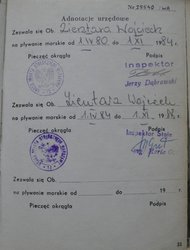 Nr 29540 /WA
Adnotacje urzędowe
Zezwala się Ob. Zientara Wojciech
na pływanie morskie od 1 IV 1980 do 1 XI 1984 r.
Pieczęć okrągła Podpis
Inspektor
Jerzy Dąbrowski
Zezwala się Ob. Zientara Wojciech
na pływanie morskie od 1 IV 1984 do 1. XI. 1988 r.
Pieczęć okrągła Podpis
Inspektor
Zezwala się Ob.
na pływanie morskie od do 19 r.
Pieczęć okrągła Podpis